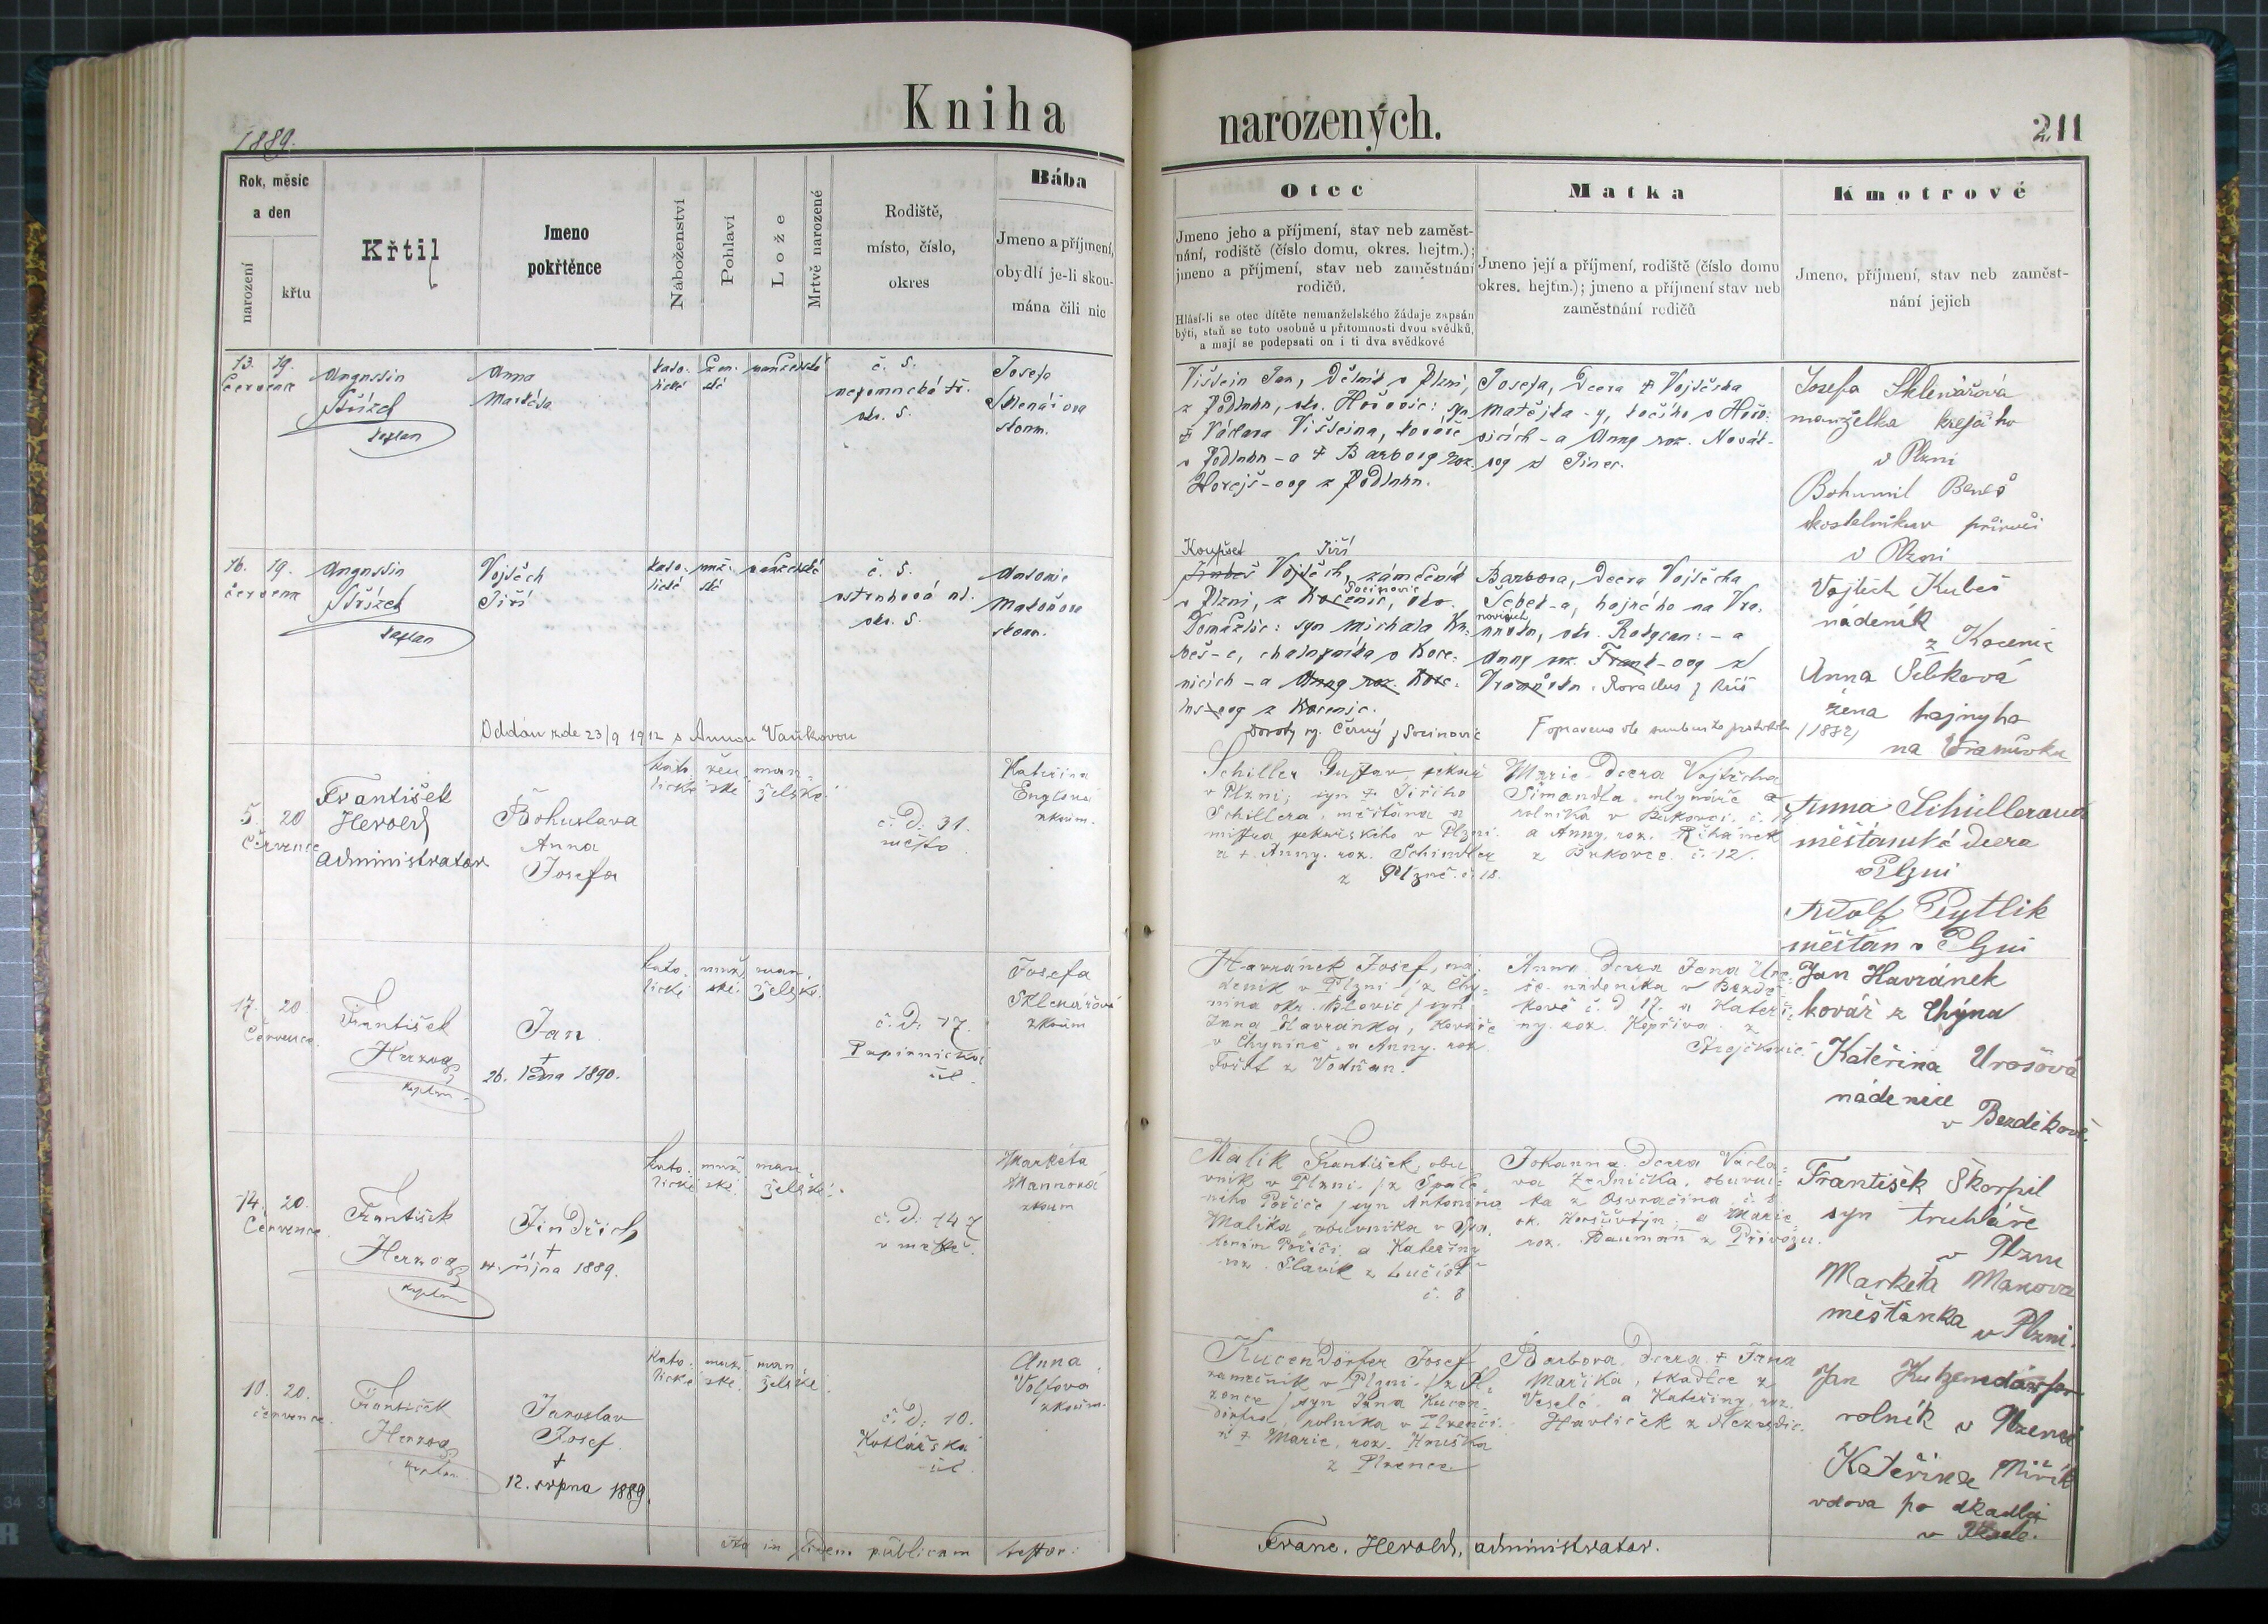 Kniha
1889.
Rok, měsíc
a den
narození
křtu
Křtil
Jmeno
pokřtěnce
Náboženství
Pohlaví
Lože
Mrtvě narozené
Rodiště,
místo, číslo,
okres
Bába
Jmeno a příjmení,
obydlí je-li skou-
mána čili nic
13. 19.
července
Augustin
Střížek
kaplan
Anna
Markéta
kato-
lické
žen-
ské
manželské
č. 5.
nepomucká tř.
okr. 5.
Josefa
Sklenářova
zkoum.
16. 19.
července
Augustin
Střížek
kaplan
Vojtěch
Jiří
kato-
lické
muž-
ské
manželské
č. 5.
ostruhová ul.
okr. 5.
Antonie
Matoušova
zkoum.
Oddán zde 23/9 1912 s Annou Vaňkovou
5. 20
Července
František
Herold
administrator
Bohuslava
Anna
Josefa
kato-
lické
žen-
ské
man-
želské
č. D. 31.
město
Kateřina
Englová
zkoum.
17. 20.
Července.
František
Herzog
kaplan
Jan
†
26. ledna 1890.
kato-
lické
muž-
ské
man-
želské
č. D. 17.
Papírnická
ul.
Josefa
Sklenářová
zkoum
14. 20.
Července.
František
Herzog
kaplan
Jindřich
†
4. října 1889.
kato-
lické
muž-
ské
man-
želské
č. D. 147
v městě.
Markéta
Mannová
zkoum
10. 20.
července.
František
Herzog
kaplan
Jaroslav
Josef
†
12. srpna 1889.
kato-
lické
muž-
ské
man-
želské
č. D. 10.
Kotlářská
ul.
Anna
Volfová
zkoum.
Ita in fidem publicam testor:
narozených.
211
Otec
Jmeno jeho a příjmení, stav neb zaměst-
nání, rodiště (číslo domu, okres. hejtm.);
jmeno a příjmení, stav neb zaměstnání
rodičů.
Hlásí-li se otec dítěte nemanželského žádaje zapsán
býti, staň se toto osobně u přítomnosti dvou svědků,
a mají se podepsati on i ti dva svědkové
Matka
Jmeno její a příjmení, rodiště (číslo domu
okres. hejtm.); jmeno a příjmení stav neb
zaměstnání rodičů
Kmotrové
Jmeno, příjmení, stav neb zaměst-
nání jejich
Vištein Jan, dělník v Plzni,
z Podluhu, okr. Hořovic: syn
† Václava Višteina, kováře
v Podluhu - a † Barbory roz.
Hořejš-ovy z Podluhu.
Josefa, dcera † Vojtěcha
Matějka-y, kočího v Hořo-
vicích - a Anny roz. Novát-
Josefa Sklenářová
manželka krejčího
v Plzni
Bohumil Beneš
kostelníkův
v Plzni
Koupšet Jiří
Kubeš Vojtěch, zámečník
v Plzni, z Kocenic, okr.
Socinovic
Domažlic: syn Michala Ku-
beš-e, chalupníka v Koce-
nicích - a Anny roz.
Kocenic.
Doroty r. Černý z Socinovic
Barbora, dcera Vojtěcha
Šebek-a, hajného na Vra-
novicích
okr. Rokycan: - a
Anny roz. Frank-ovy z
Vojtěch Kubeš
nádeník
z Kocenic
Anna Šebková
žena hajnyho
na Vranůvku
Schiller Gustav, pekař
v Plzni; syn † Jiřího
Schillera, měšťana a
mistra pekařského v Plzni
a † Anny, roz. Schindler
z Plzně č. 18.
Marie dcera Vojtěcha
Šimandla, mlynáře a
rolníka v Bukovci, č. 12
a Anny, roz. Řihánek
z Bukovce č. 12.
Anna Schüllerauá
měšťanská dcera
v Plzni
Adolf Pytlik
měšťan v Plzni
Havránek Josef, ná-
deník v Plzni /z Chy-
nína okr. Blovic/ syn
Jana Havránka, kováře
v Chyníně, a Anny, roz.
z Vodňan.
Anna dcera Jana Uro-
še nádeníka v Bezdě-
kově č. D 17. a Kateři-
ny, roz. Kopřiva z
Jan Havránek
kovář z Chýna
Kateřina Urošová
nádenice
v Bezděkově.
Malík František, obu-
vník v Plzni /z Spále-
ného Poříčí/ syn Antonína
Malíka, obuvníka v Spá-
leném Poříčí a Kateřiny
roz. Slavík z Lučišť
č. 8
Johanna dcera Václa-
va Zedníčka, obuvní-
ka z Osvračína č. 8
ok. Horšův týn, a Marie
roz. Bauman z Přívozu.
František Škorpil
syn truhláře
v Plzni
Marketa Manova
měšťanka v Plzni.
Kucendörfer Josef
zámečník v Plzni /z Pl-
zence/ syn Jana Kucen-
dörfra, rolníka v Plzenci
a † Marie, roz. Hruška
z Plzence
Barbora dcera † Jana
Maříka, tkadlce z
Veselé, a Kateřiny, roz.
Havlíček z Nezvěstic.
Jan Kutzendörfer
rolník v Plzenci
Kateřina Miřík
vdova po tkadlci
Franc. Herold, administrator.